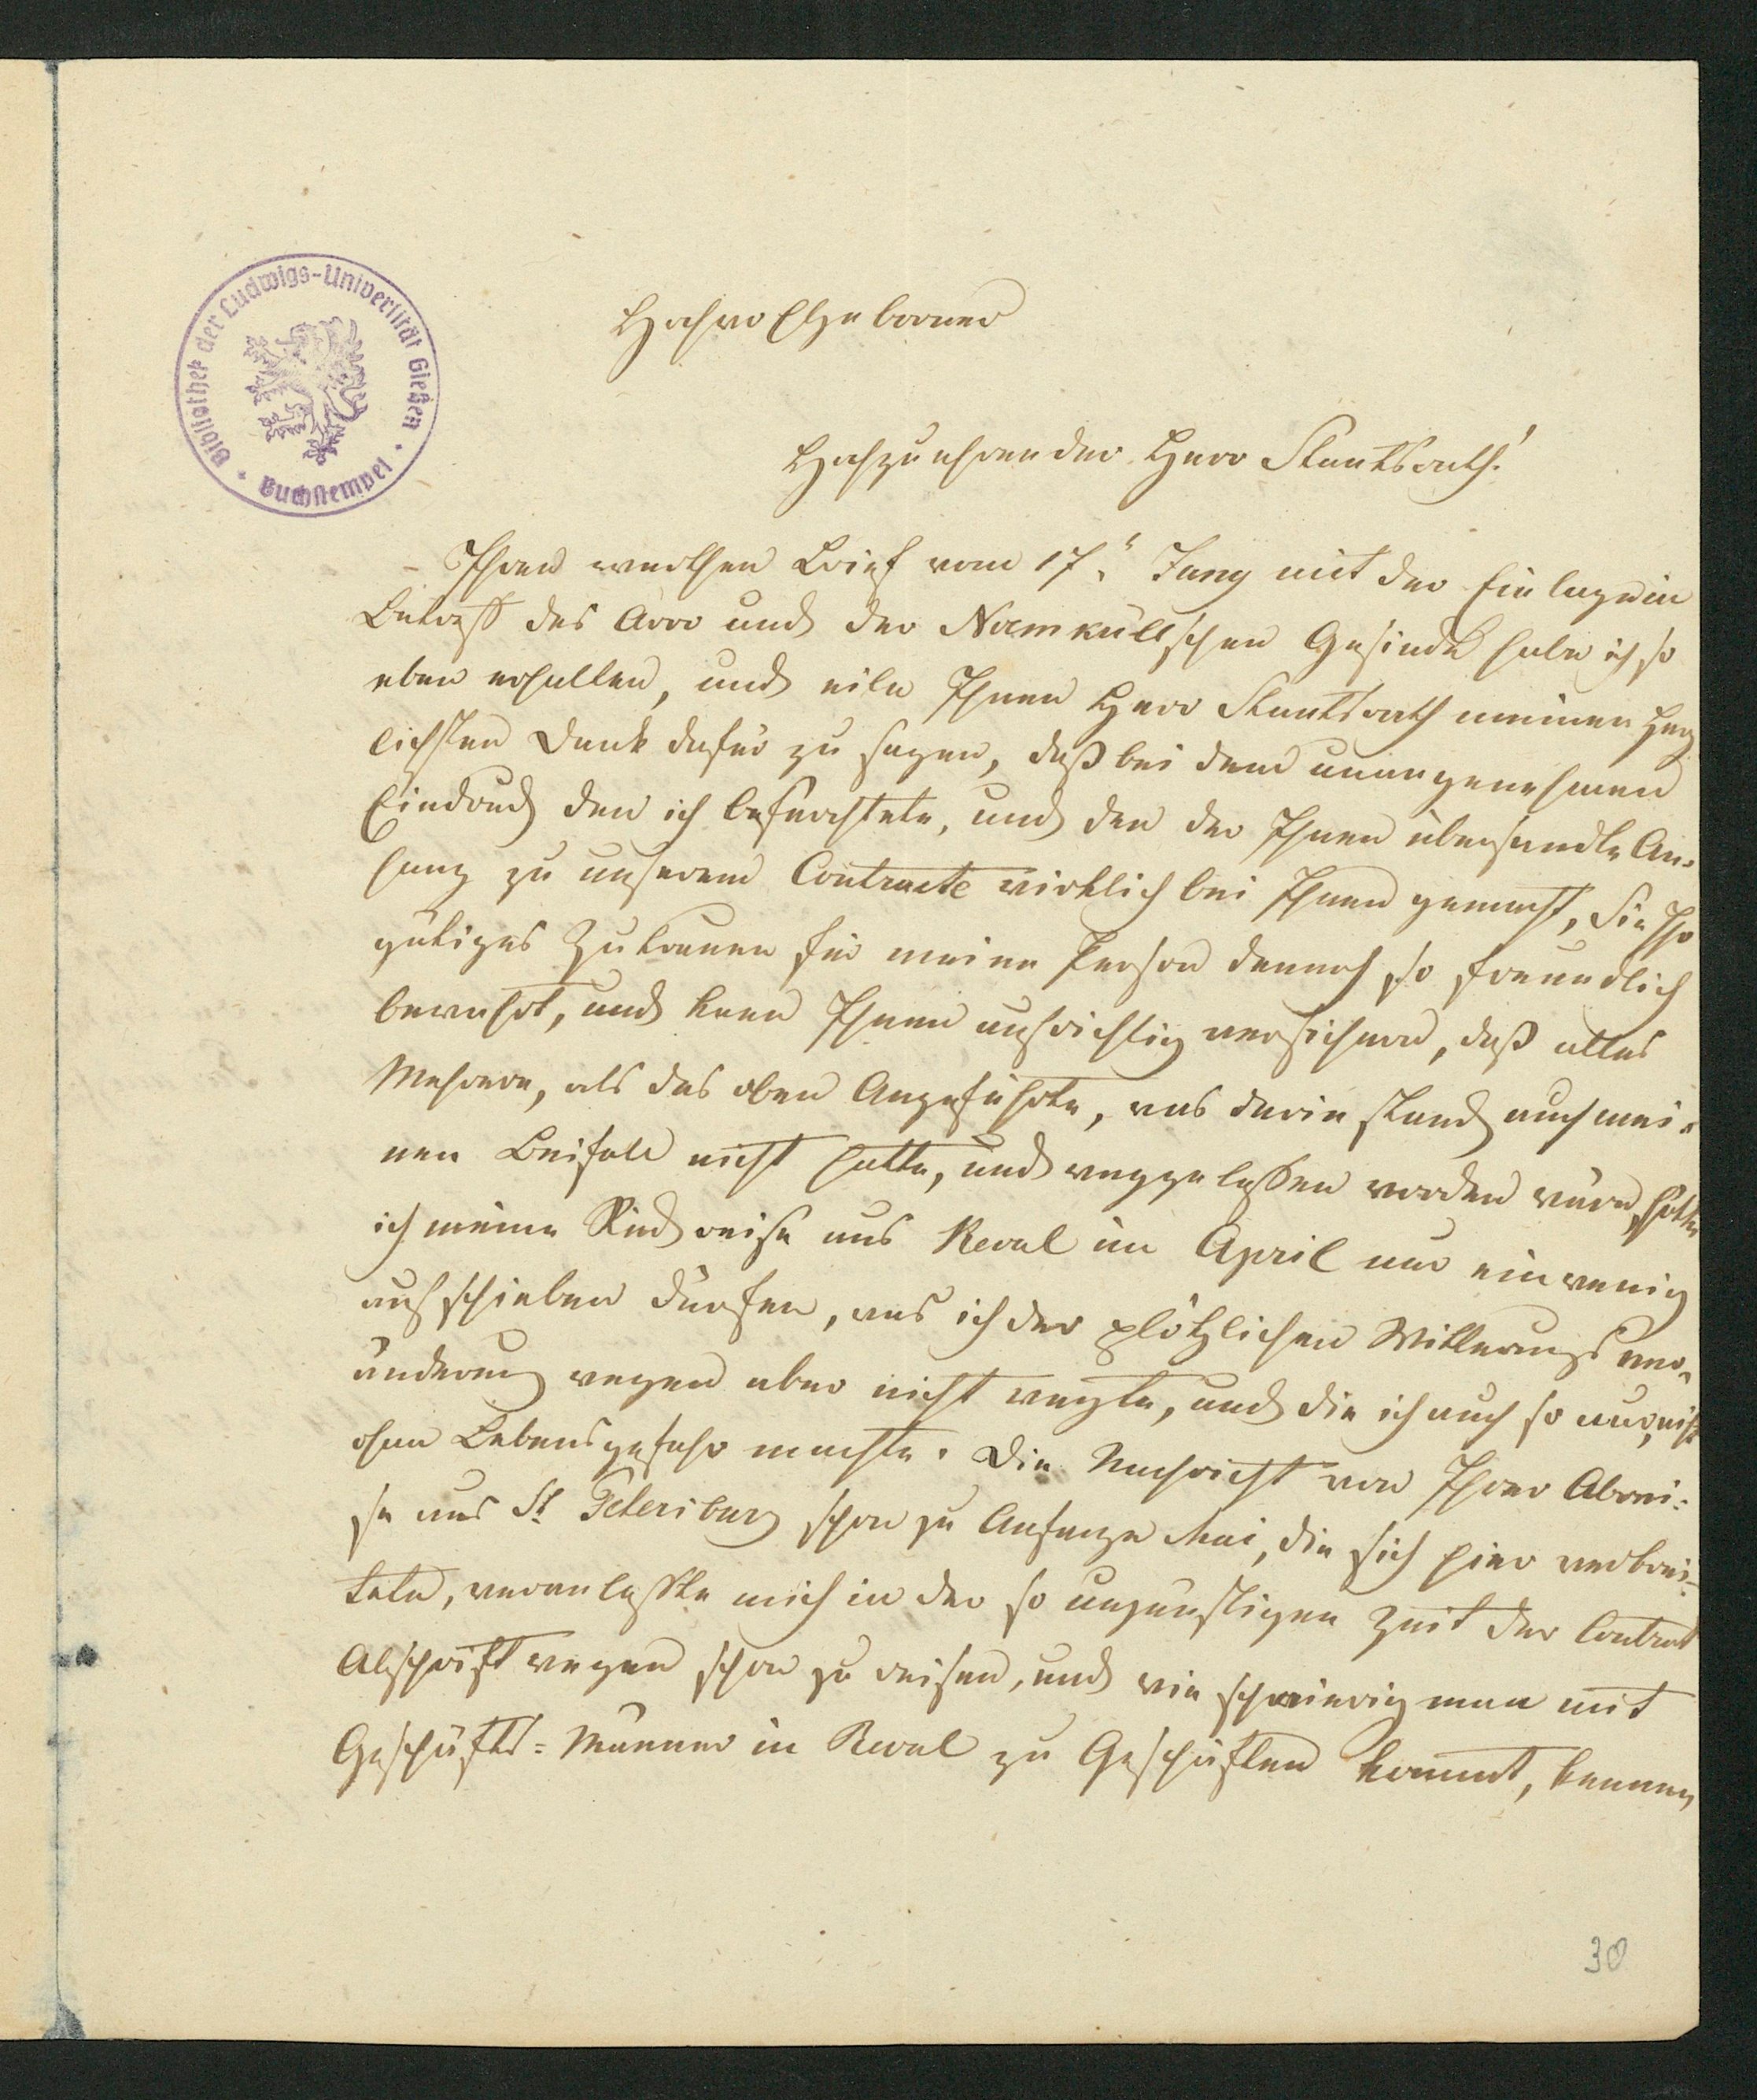 Bibliothek der Ludwigs-Universität Gießen
Buchstempel
Hochwohlgeborner
Hochzuehrender Herr Staatsrath!
Ihren werthen Brief vom 17. Juny mit der Einlage in
Betreff des Arro und der Noemküllschen Gesinde habe ich so
eben erhalten, und eile Ihnen Herr Staatsrath meinen herz
lichsten Dank dafür zu sagen, daß bei dem unangenehmen
Eindruck den ich befürchtete, und den der Ihnen übersandte An-
hang zu unserem Contracte wirklich bei Ihnen gemacht, Sie Ihr
gütiges Zutrauen für meine Person dennoch so freundlich
bewahrt, und kann Ihnen aufrichtig versichern, daß alles
Mehrere, als das oben Angeführte, was darin stand auch mei-
nen Beifall nicht hatte, und weggelassen worden wäre, hätte
ich meine Rückreise aus Reval im April nur ein wenig
aufschieben dürfen, was ich der plötzlichen Witterungs ver-
änderung wegen aber nicht wagte, und die ich auch so nur, nicht
ohne Lebensgefahr machte. Die Nachricht von Ihrer Abrei-
se aus St. Petersburg schon zu Anfange Mai, die sich hier verbrei-
tete, veranlaßte mich in der so ungünstigen Zeit der Contract
Abschrift wegen schon zu reisen, und wie schwierig man mit
Geschäfts-Männer in Reval zu Geschäften kommt, kennen
30